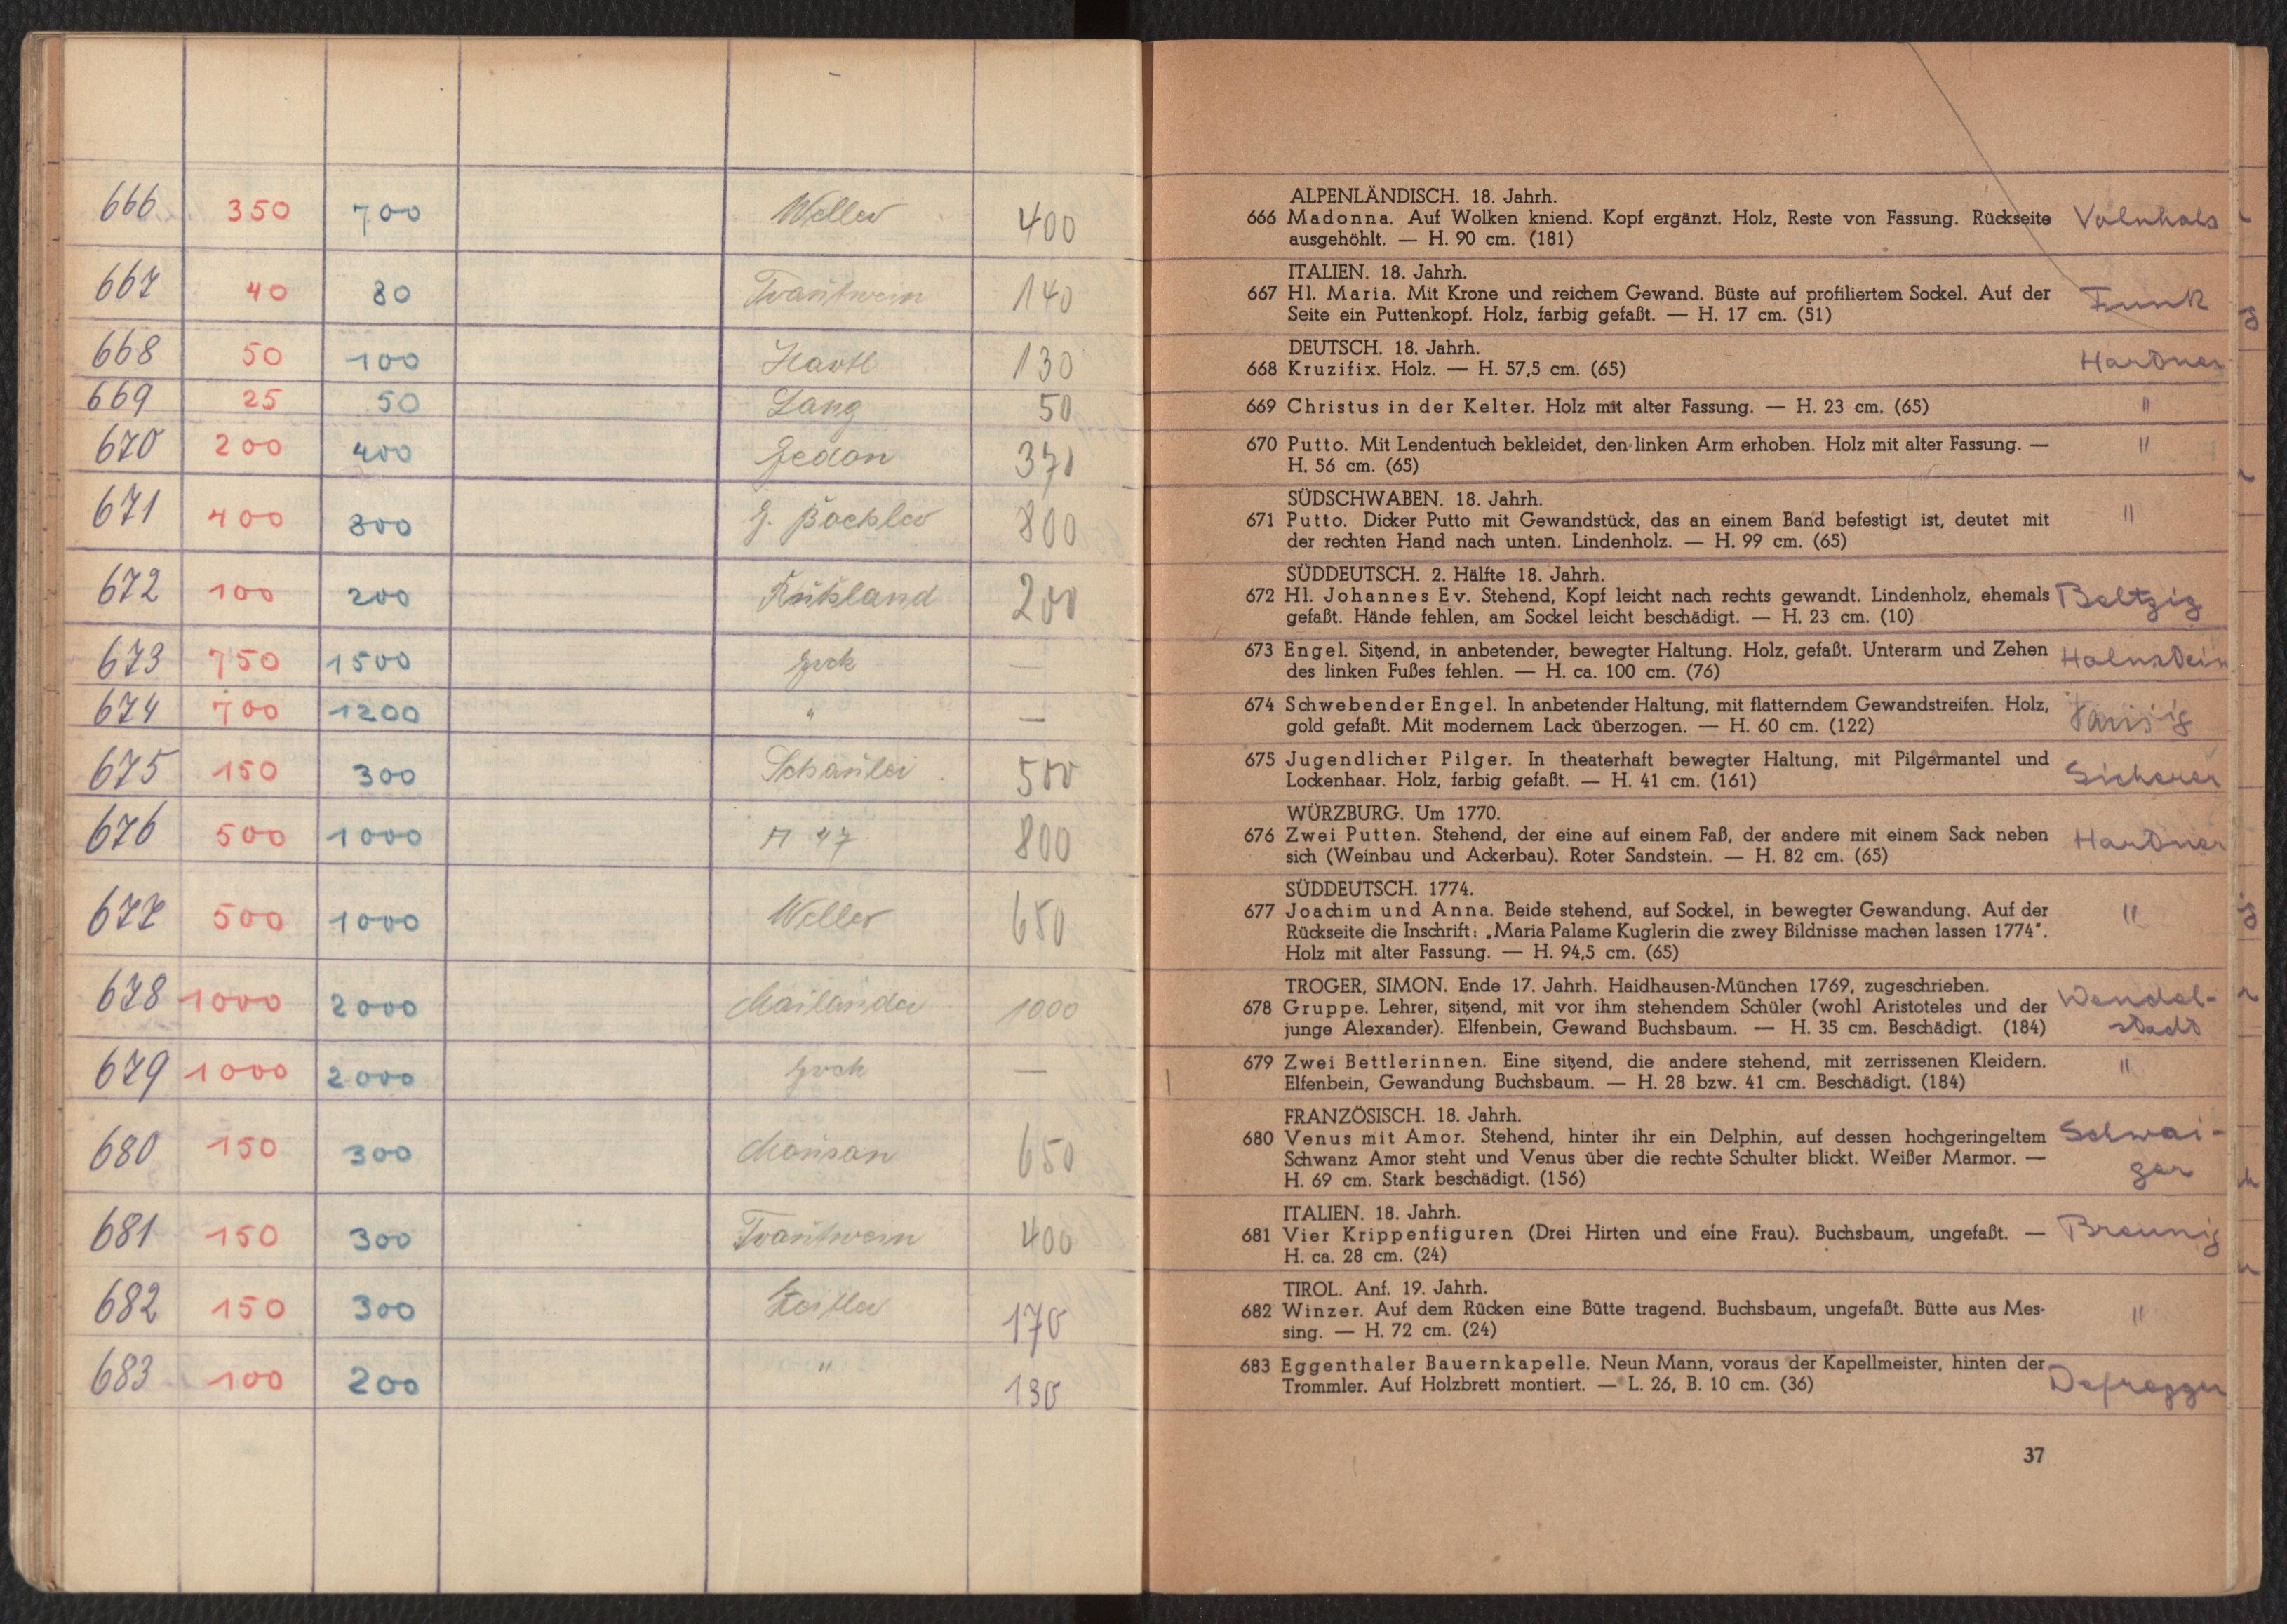 666 350 700 Weller 400
667 40 80 Trautwein 140
668 50 100 Hartl 130
669 25 50 Lang 50
670 200 400 Gedon 370
671 400 800 J. Böehler 800
672 100 200 Ruhland 200
673 750 1500 —
674 700 1200 " —
675 150 300 500
676 500 1000 47 800
677 500 1000 Weller 650
678 1000 2000 Mailänder 1000
679 1000 2000 —
680 150 300 650
681 150 300 Trautwein 400
682 150 300 170
683 100 200 " 130
ALPENLÄNDISCH. 18. Jahrh.
666 Madonna. Auf Wolken kniend. Kopf ergänzt. Holz, Reste von Fassung. Rückseite
ausgehöhlt. — H. 90 cm. (181)
ITALIEN. 18. Jahrh.
667 Hl. Maria. Mit Krone und reichem Gewand. Büste auf profiliertem Sockel. Auf der Funk
Seite ein Puttenkopf. Holz, farbig gefaßt. — H. 17 cm. (51)
DEUTSCH. 18. Jahrh.
668 Kruzifix. Holz. — H. 57,5 cm. (65) Hardner
669 Christus in der Kelter. Holz mit alter Fassung. — H. 23 cm. (65) "
670 Putto. Mit Lendentuch bekleidet, den linken Arm erhoben. Holz mit alter Fassung. — "
H. 56 cm. (65)
SÜDSCHWABEN. 18. Jahrh.
671 Putto. Dicker Putto mit Gewandstück, das an einem Band befestigt ist, deutet mit "
der rechten Hand nach unten. Lindenholz. — H. 99 cm. (65)
SÜDDEUTSCH. 2. Hälfte 18. Jahrh.
672 Hl. Johannes Ev. Stehend, Kopf leicht nach rechts gewandt. Lindenholz, ehemals Beltzig
gefaßt. Hände fehlen, am Sockel leicht beschädigt. — H. 23 cm. (10)
673 Engel. Sitzend, in anbetender, bewegter Haltung. Holz, gefaßt. Unterarm und Zehen Holnstein
des linken Fußes fehlen. — H. ca. 100 cm. (76)
674 Schwebender Engel. In anbetender Haltung, mit flatterndem Gewandstreifen. Holz,
gold gefaßt. Mit modernem Lack überzogen. — H. 60 cm. (122)
675 Jugendlicher Pilger. In theaterhaft bewegter Haltung, mit Pilgermantel und
Lockenhaar. Holz, farbig gefaßt. — H. 41 cm. (161) Sicherer
WÜRZBURG. Um 1770.
676 Zwei Putten. Stehend, der eine auf einem Faß, der andere mit einem Sack neben Hardner
sich (Weinbau und Ackerbau). Roter Sandstein. — H. 82 cm. (65)
SÜDDEUTSCH. 1774.
677 Joachim und Anna. Beide stehend, auf Sockel, in bewegter Gewandung. Auf der "
Rückseite die Inschrift: „Maria Palame Kuglerin die zwey Bildnisse machen lassen 1774".
Holz mit alter Fassung. — H. 94,5 cm. (65)
TROGER, SIMON. Ende 17. Jahrh. Haidhausen-München 1769, zugeschrieben.
678 Gruppe. Lehrer, sitzend, mit vor ihm stehendem Schüler (wohl Aristoteles und der Wendel-
junge Alexander). Elfenbein, Gewand Buchsbaum. — H. 35 cm. Beschädigt. (184) stadt
679 Zwei Bettlerinnen. Eine sitzend, die andere stehend, mit zerrissenen Kleidern. "
Elfenbein, Gewandung Buchsbaum. — H. 28 bzw. 41 cm. Beschädigt. (184)
FRANZÖSISCH. 18. Jahrh.
680 Venus mit Amor. Stehend, hinter ihr ein Delphin, auf dessen hochgeringeltem Schwai-
Schwanz Amor steht und Venus über die rechte Schulter blickt. Weißer Marmor. — ger
H. 69 cm. Stark beschädigt. (156)
ITALIEN. 18. Jahrh.
681 Vier Krippenfiguren (Drei Hirten und eine Frau). Buchsbaum, ungefaßt. — Breunig
H. ca. 28 cm. (24)
TIROL. Anf. 19. Jahrh.
682 Winzer. Auf dem Rücken eine Bütte tragend. Buchsbaum, ungefaßt. Bütte aus Mes- "
sing. — H. 72 cm. (24)
683 Eggenthaler Bauernkapelle. Neun Mann, voraus der Kapellmeister, hinten der
Trommler. Auf Holzbrett montiert. — L. 26, B. 10 cm. (36) Defregger
37